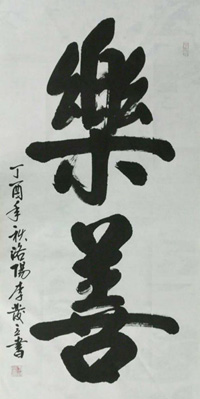 樂善
丁酉年秋洛陽李發立書